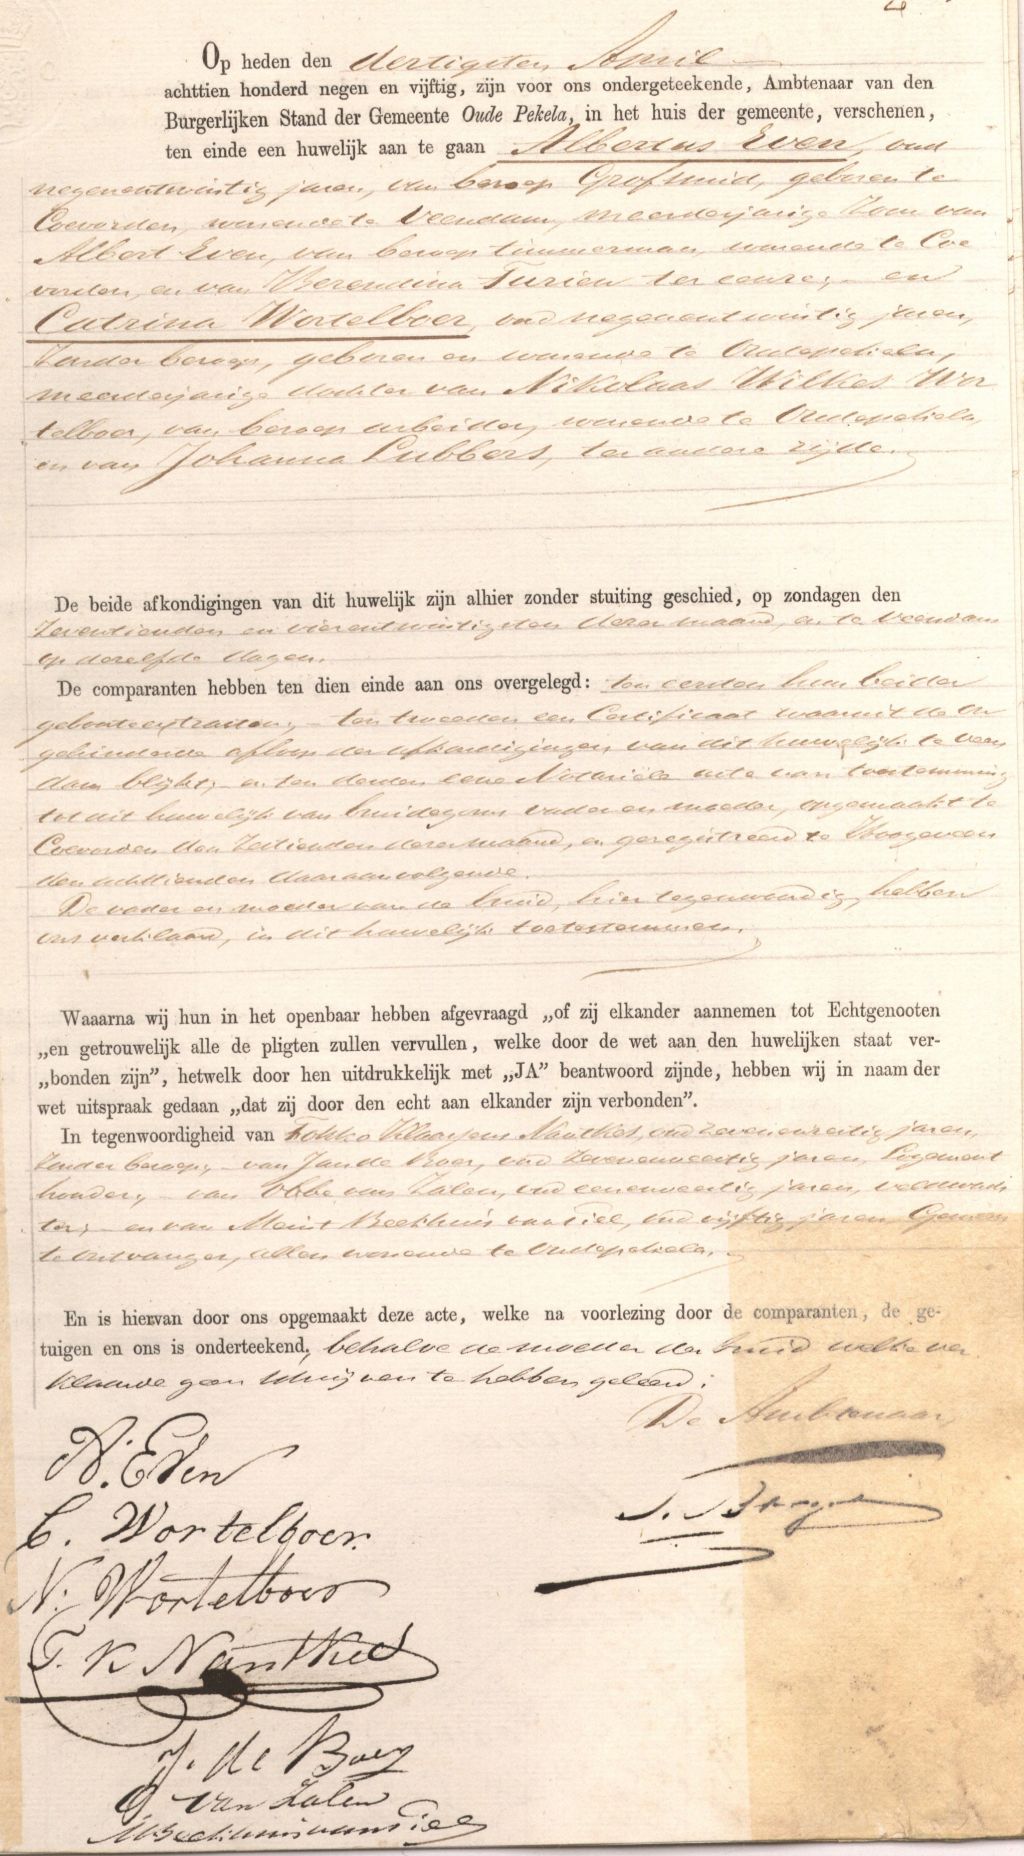 Op heden den dertigsten April
achttien honderd negen en vijftig, zijn voor ons ondergeteekende, Ambtenaar van den
Burgerlijken Stand der Gemeente Oude Pekela, in het huis der gemeente, verschenen,
ten einde een huwelijk aan te gaan Albertus Even, oud
negenentwintig jaren, van beroep Grofsmid, geboren te
Coevorden, wonende te Veendam, meerderjarige Zoon van
Albert Even, van beroep timmerman, wonende te Coe
vorden, en van Berendina Turien ter eenre; en
Catrina Wortelboer, oud negenentwintig jaren,
Zonder beroep, geboren en wonende te Oudepekela,
meerderjarige dochter van Nikolaas Wilkes Wor
telboer, van beroep arbeider, wonende te Oudepekela,
en van Johanna Lubbers, ter andere zijde.
De beide afkondigingen van dit huwelijk zijn alhier zonder stuiting geschied, op zondagen den
Zeventienden en vierentwintigsten dezer maand, en te Veendam
op dezelfde dagen.
De comparanten hebben ten dien einde aan ons overgelegd: ten eersten hun beider
geboorteextracten; ten tweeden een Certificaat waaruit de on
gehinderde afloop der afkondigingen van dit huwelijk te Veen
dam blijkt; en ten derden eene Notariële acte van toestemming
tot dit huwelijk van bruidegoms vader en moeder, opgemaakt te
Coevorden den Zestienden dezer maand, en geregistreerd te Hoogeveen
den achttienden daaraanvolgende.
De vader en moeder van de bruid, hier tegenwoordig, hebben
ons verklaard, in dit huwelijk toetestemmen.
Waaarna wij hun in het openbaar hebben afgevraagd „of zij elkander aannemen tot Echtgenooten
„en getrouwelijk alle de pligten zullen vervullen, welke door de wet aan den huwelijken staat ver-
„bonden zijn”, hetwelk door hen uitdrukkelijk met „JA” beantwoord zijnde, hebben wij in naam der
wet uitspraak gedaan „dat zij door den echt aan elkander zijn verbonden”.
In tegenwoordigheid van Fokko Klaassens Nantkes, oud zevenenzestig jaren,
Zonder beroep; van Jan de Boer, oud Zevenenveertig jaren, Logement
houder; van Obbe van Zalen, oud eenenveertig jaren, veldwach
ter; en van Meint Beekhuis van Tiel, oud vijftig jaren Gemeen
te Ontvanger, allen wonende te Oudepekela.
En is hiervan door ons opgemaakt deze acte, welke na voorlezing door de comparanten, de ge-
tuigen en ons is onderteekend, behalve de moeder der bruid welke ver
klaarde geen schrijven te hebben geleerd.
De Ambtenaar,
A. Even
C. Wortelboer.
N. Wortelboer
F. K Nantkes
J. de Boer
O van Zalen
M Beekhuis van Tiel